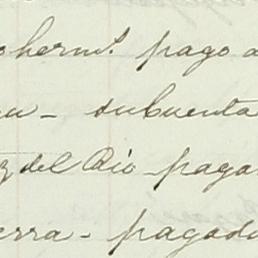 herms. pago a
- subcuenta
z del Rio - paga
erra - pagado